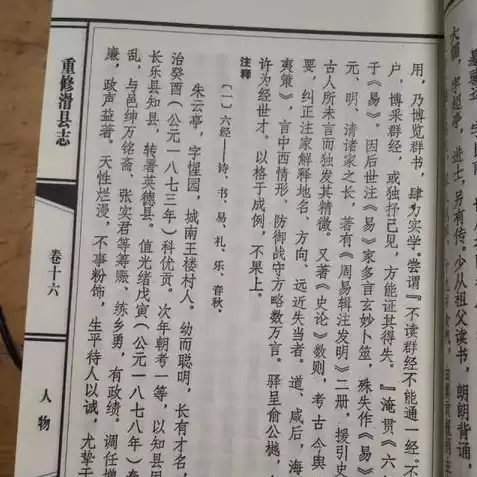 士,另有传。少从祖父读书,朗朗背诵,
用,乃博览群书,肆为实学。尝谓『不读群经不能通一经。不
户,博采群经,或独抒己见,方能证其得失。『淹贯《六
于《易》。因后世注《易》家多言玄妙卜筮,殊失作《易》
元、明、清诸家之长,著有《周易辑注发明》二册,援引史
古人所未言而独发其精微。又著《史论》数则,考古今舆
要,纠正注家解释地名、方向、远近失当者。道、咸后,海
夷策》,言中西情形,防御战守方略数万言。驿呈俞公樾,
许为经世才。以格于成例,不果上。
注释
(一)六经——诗、书、易、礼、乐、春秋。
朱云亭,字惺园,城南王楼村人。幼而聪明,长有才名,
治癸酉(公元一八七三年)科优贡。次年朝考一等,以知县
长乐县知县,转署英德县。值光绪戊寅(公元一八七八年)
乱,与邑绅万铭斋、张实君等筹赈、练乡勇,有政绩。调任增
廉,政声益著。天性烂漫,不事粉饰,生平待人以诚,尤挚于
重修滑县志
卷十六
人物